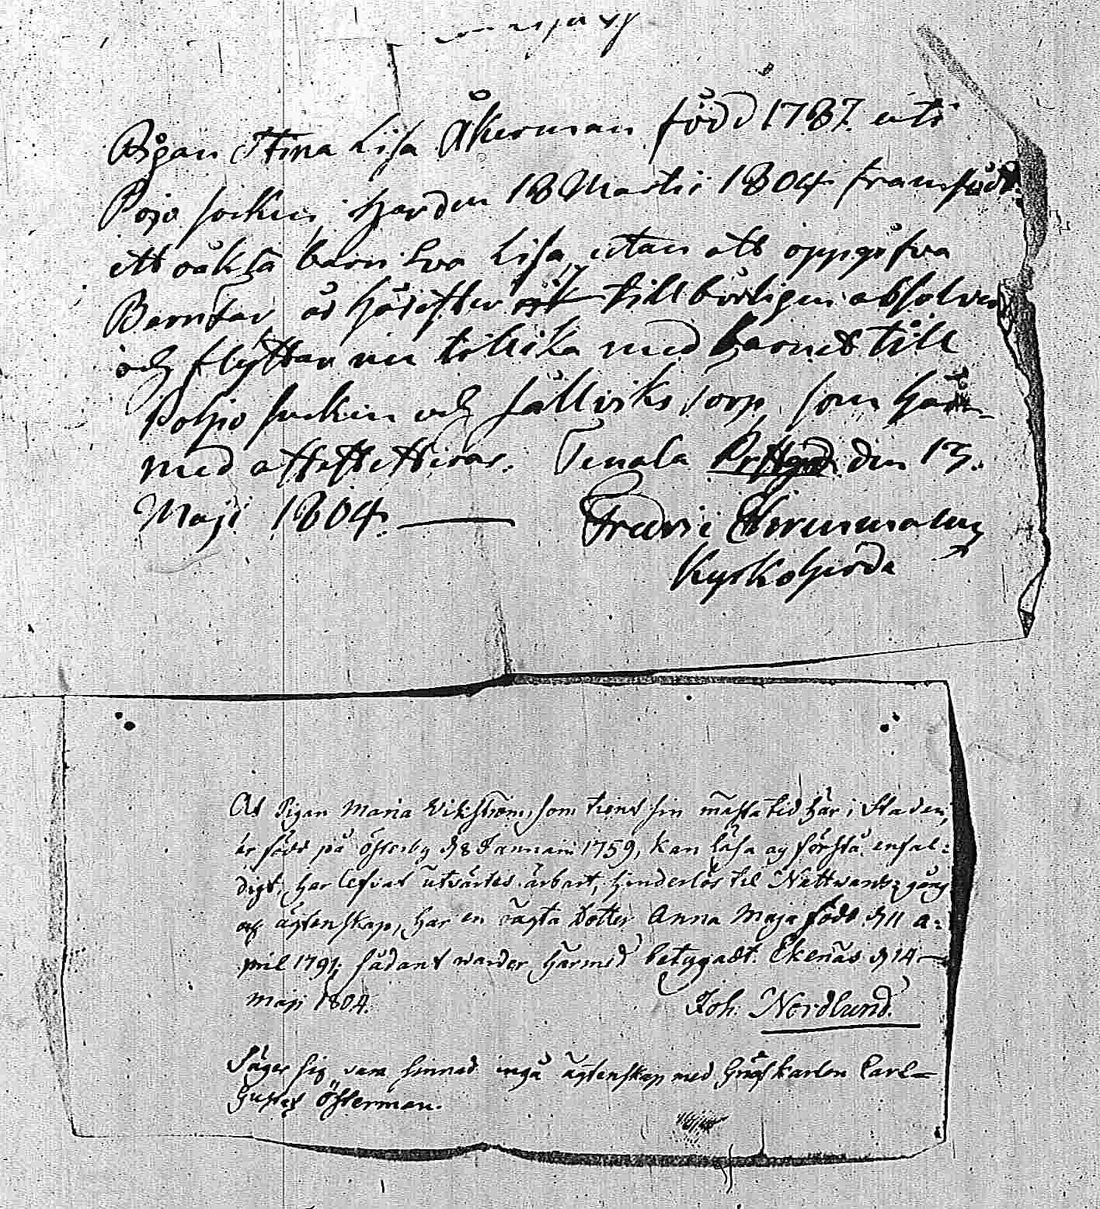 Pigan Stina Lisa Åkerman född 1787. uti
Pojo socken, har den 18 Martii 1804 framfödt
ett oäkta barn Eva Lisa, utan att oppgifva
Barnfar, är härefter tillbörligen absolverad
och flyttar nu tillika med barnet till
Pohjo socken och Sällviks torp, som här-
med attesteras. Tenala Prstgrd den 13.
Maji 1804.
Fredric
Kyrkoherde
At Pigan Maria Vikström, som tient sin mästa tid här i Staden,
är född på Österby d. 8 Januarii 1759, kan läsa og förstå enfal-
digt, har lefvat utvärtes ärbart, hinderlös til Nattwards gång
och ägtenskap, har en oägta dotter Anna Maja född d. 11 A-
pril 1791; sådant warder härmed betygadt. Ekenäs d. 14
Maji 1804.
Joh. Nordlund.
Säger sig vara sinnad ingå ägtenskap med Carl
Gustaf Österman.